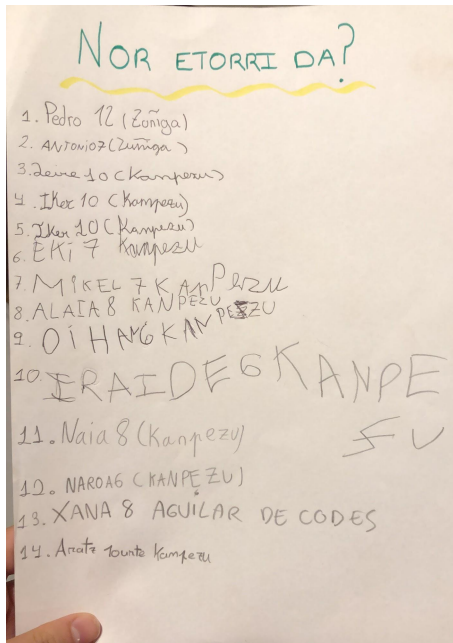 NOR ETORRI DA?
1. Pedro 12 (Zuñiga)
2. ANTONIO 7 (Zuñiga)
3. Leire 10 (Kanpezu)
4. Iker 10 (Kampezu)
5. Iker 10 (Kampezu)
6. EKI 7 Kanpezu
7. MIKEL 7 KANPezu
8. ALAIA 8 KANPEZU
9. OIHAN 6 KANPEZU
10. IRAIDE 6 KANPE
ZU
11. Naia 8 (Kanpezu)
12. NAROA 6 (KANPEZU)
13. XANA 8 AGUILAR DE CODES
14. Aratz 10urte Kampezu